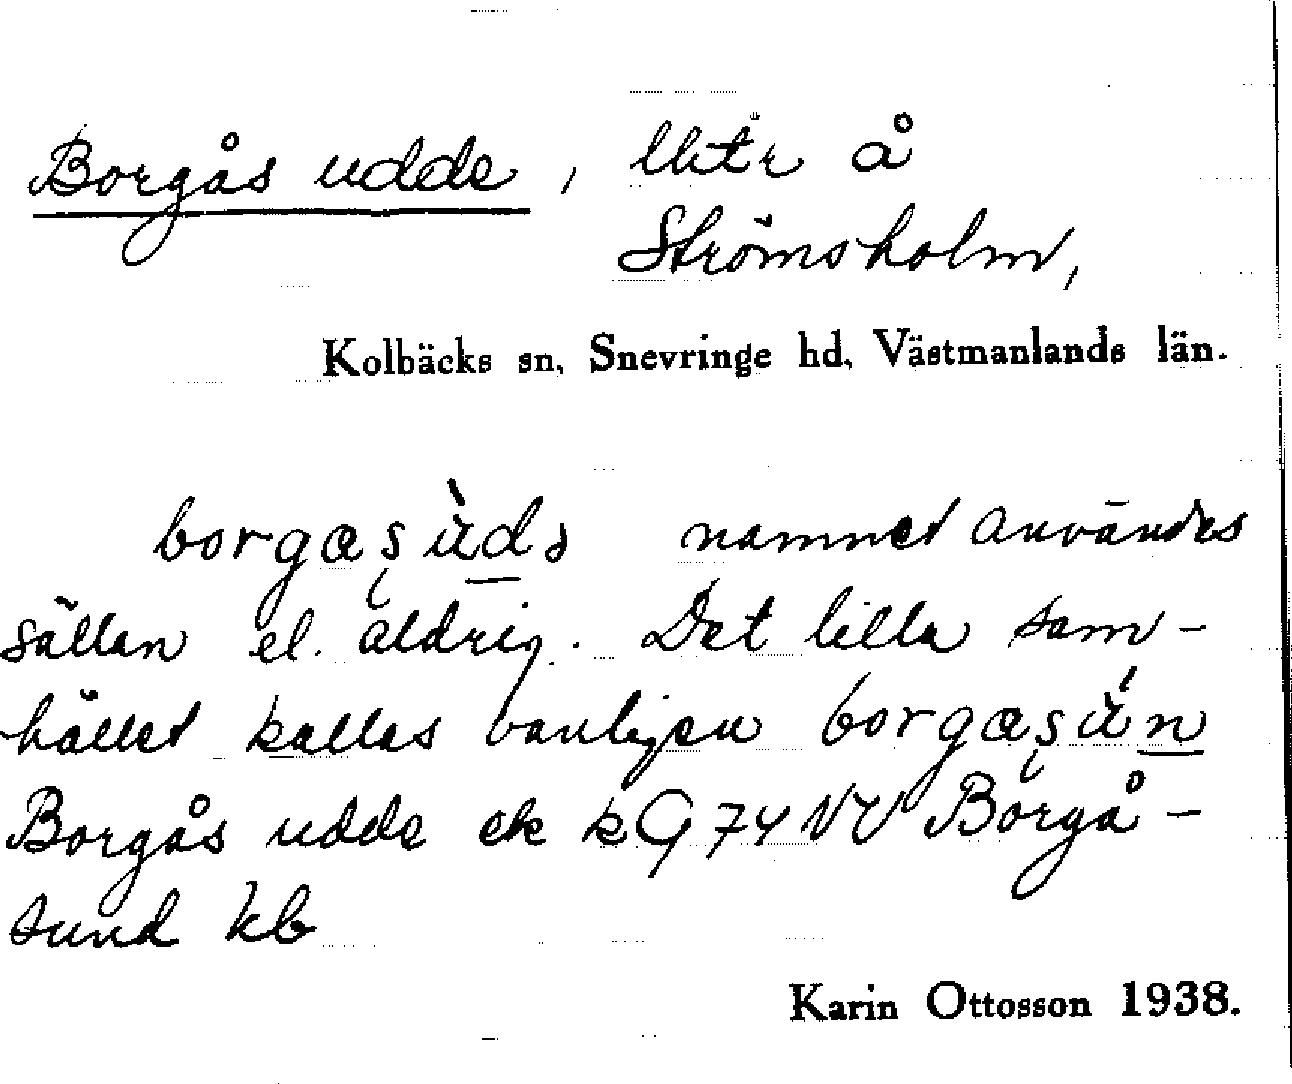 Borgås udde, lht r å
Strömsholm,
Kolbäcks sn, Snevringe hd, Västmanlands län.
borgaşùdə namnet användes
sällan el. aldrig. Det lilla sam-
hället kallas vanligen borgaşùn
Borgås udde ek kG 74 NV Borgå-
sund kb
Karin Ottosson 1938.